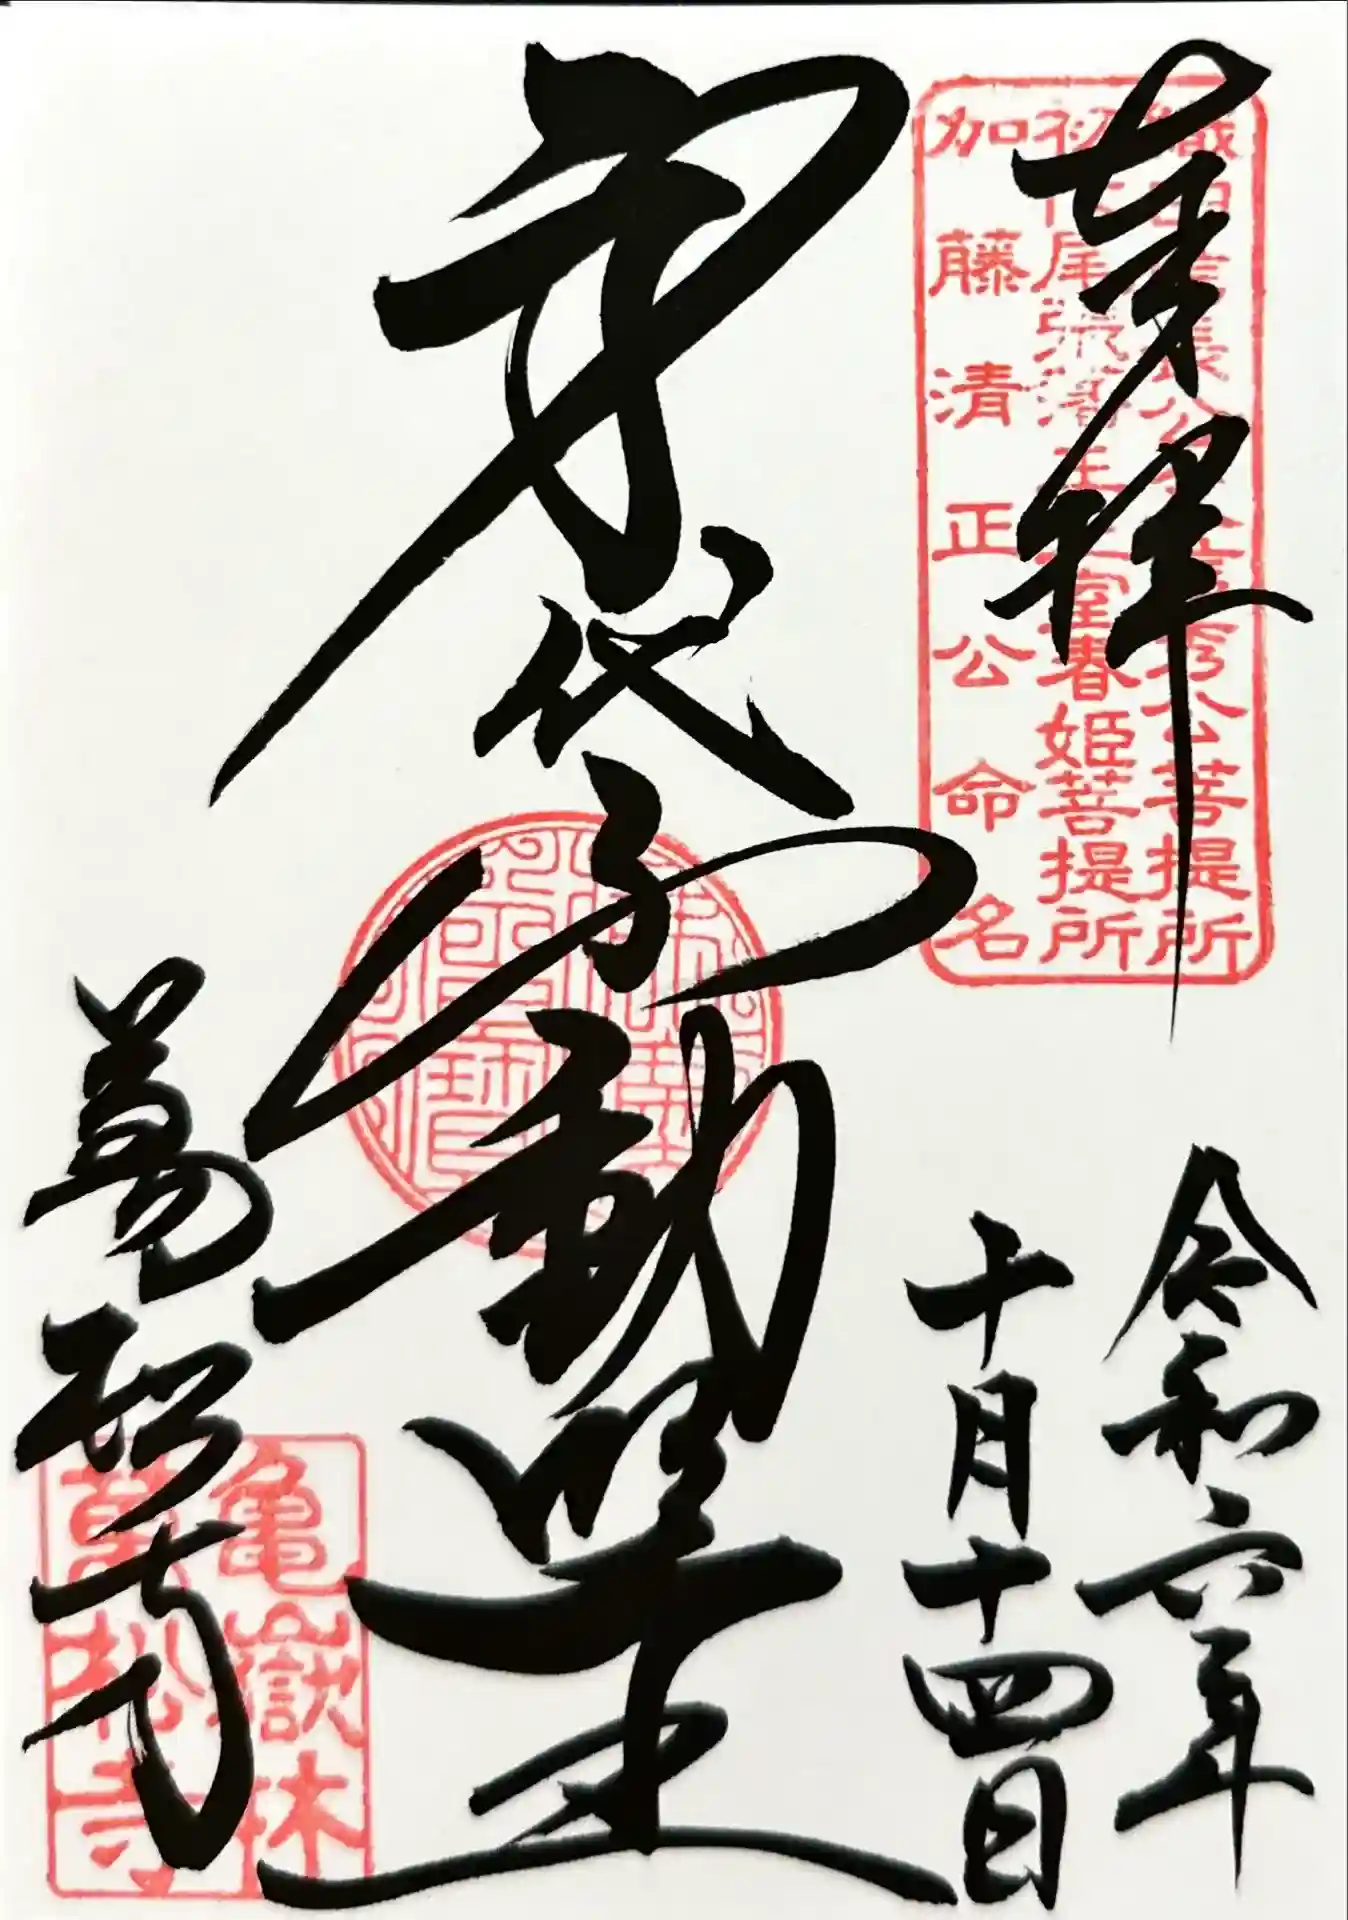 奉拝
織田信長公 信秀公菩提所
初代尾張藩主正室春姫菩提所
加藤清正公命名
令和六年
十月十四日
身代不動明王
萬松寺
亀嶽林
萬松寺